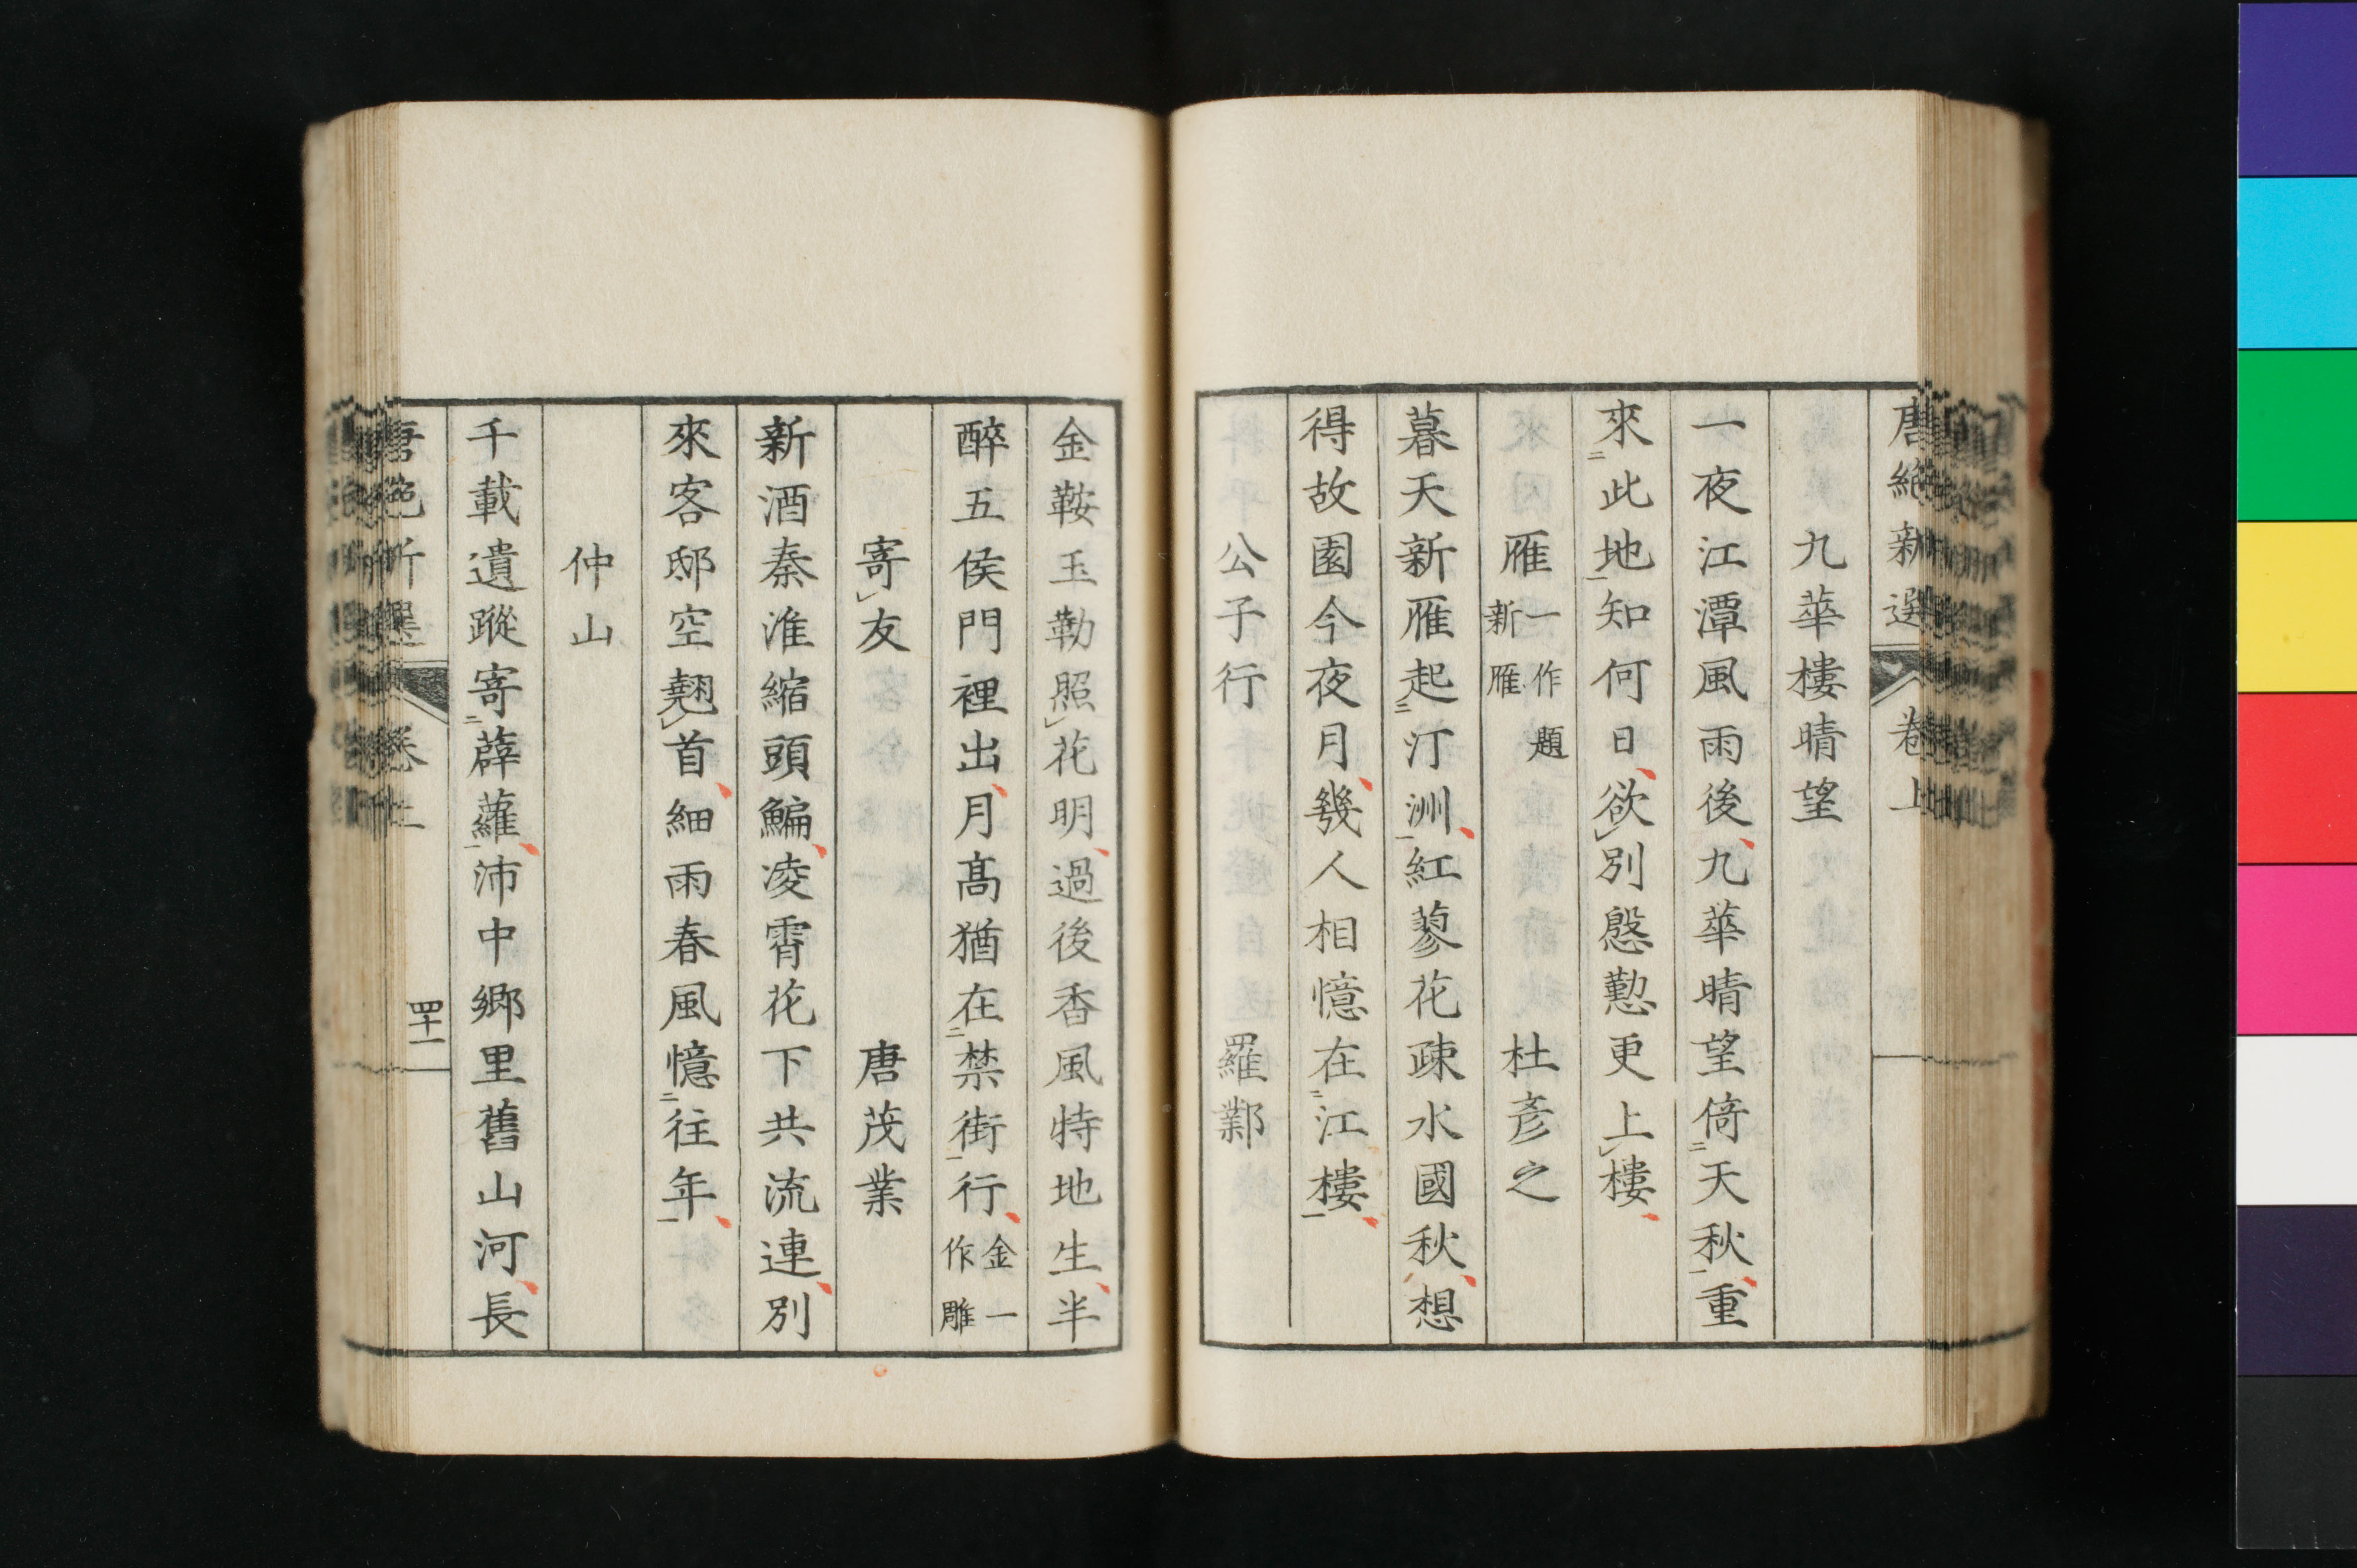 唐絕新選 卷上
九華樓晴望
一夜江潭風雨後九華晴望倚天秋重
來此地知何日欲別慇懃更上樓
雁 一作題新雁 杜彥之
暮天新雁起汀洲紅蓼花疎水國秋想
得故園今夜月幾人相憶在江樓
公子行 羅鄴
金鞍玉勒照花明過後香風特地生半
醉五侯門裡出月高猶在禁街行 金一作雕
寄友 唐茂業
新酒秦淮縮頭鯿凌霄花下共流連別
來客邸空翹首細雨春風憶往年
仲山
千載遺蹤寄薜蘿沛中鄉里舊山河長
唐絕新選 卷上 四十一